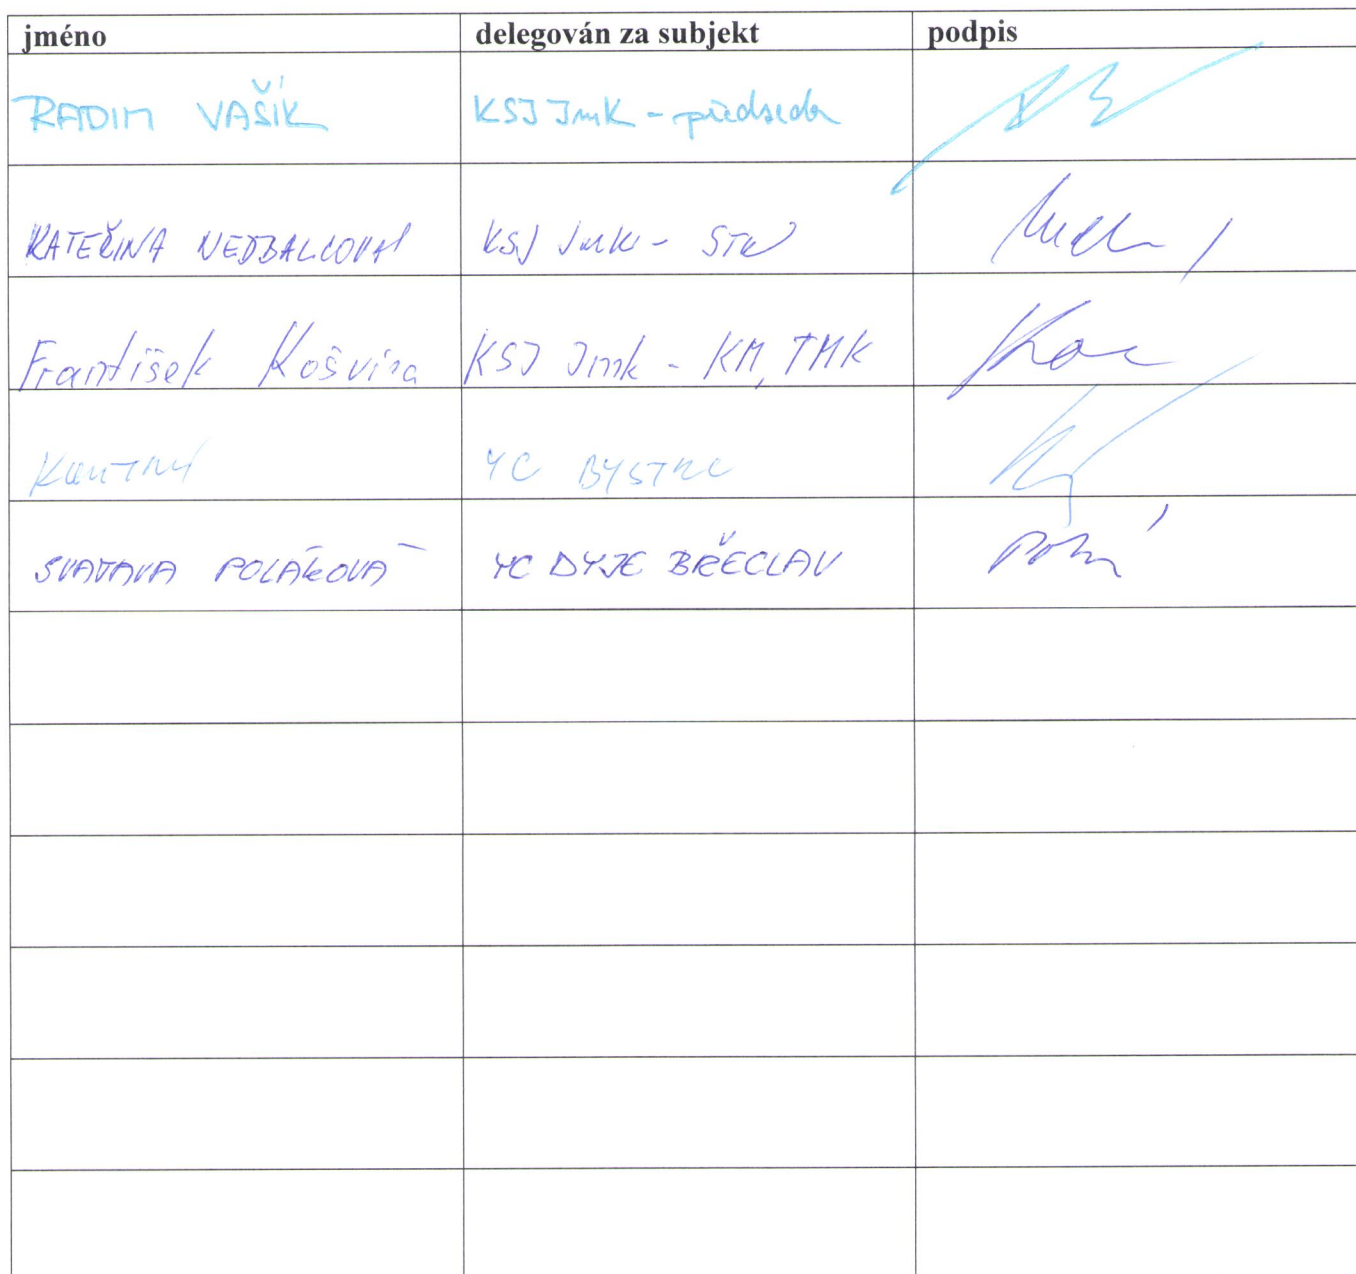 jméno delegován za subjekt podpis
RADIM VAŠÍK KSJ JmK - předseda
KATEŘINA NEDBALCOVÁ KSJ JmK - STK
František Košvica KSJ Jmk - KM, TMK
YC BYSTRC
SVATAVA POLÁKOVÁ YC DYJE BŘECLAV